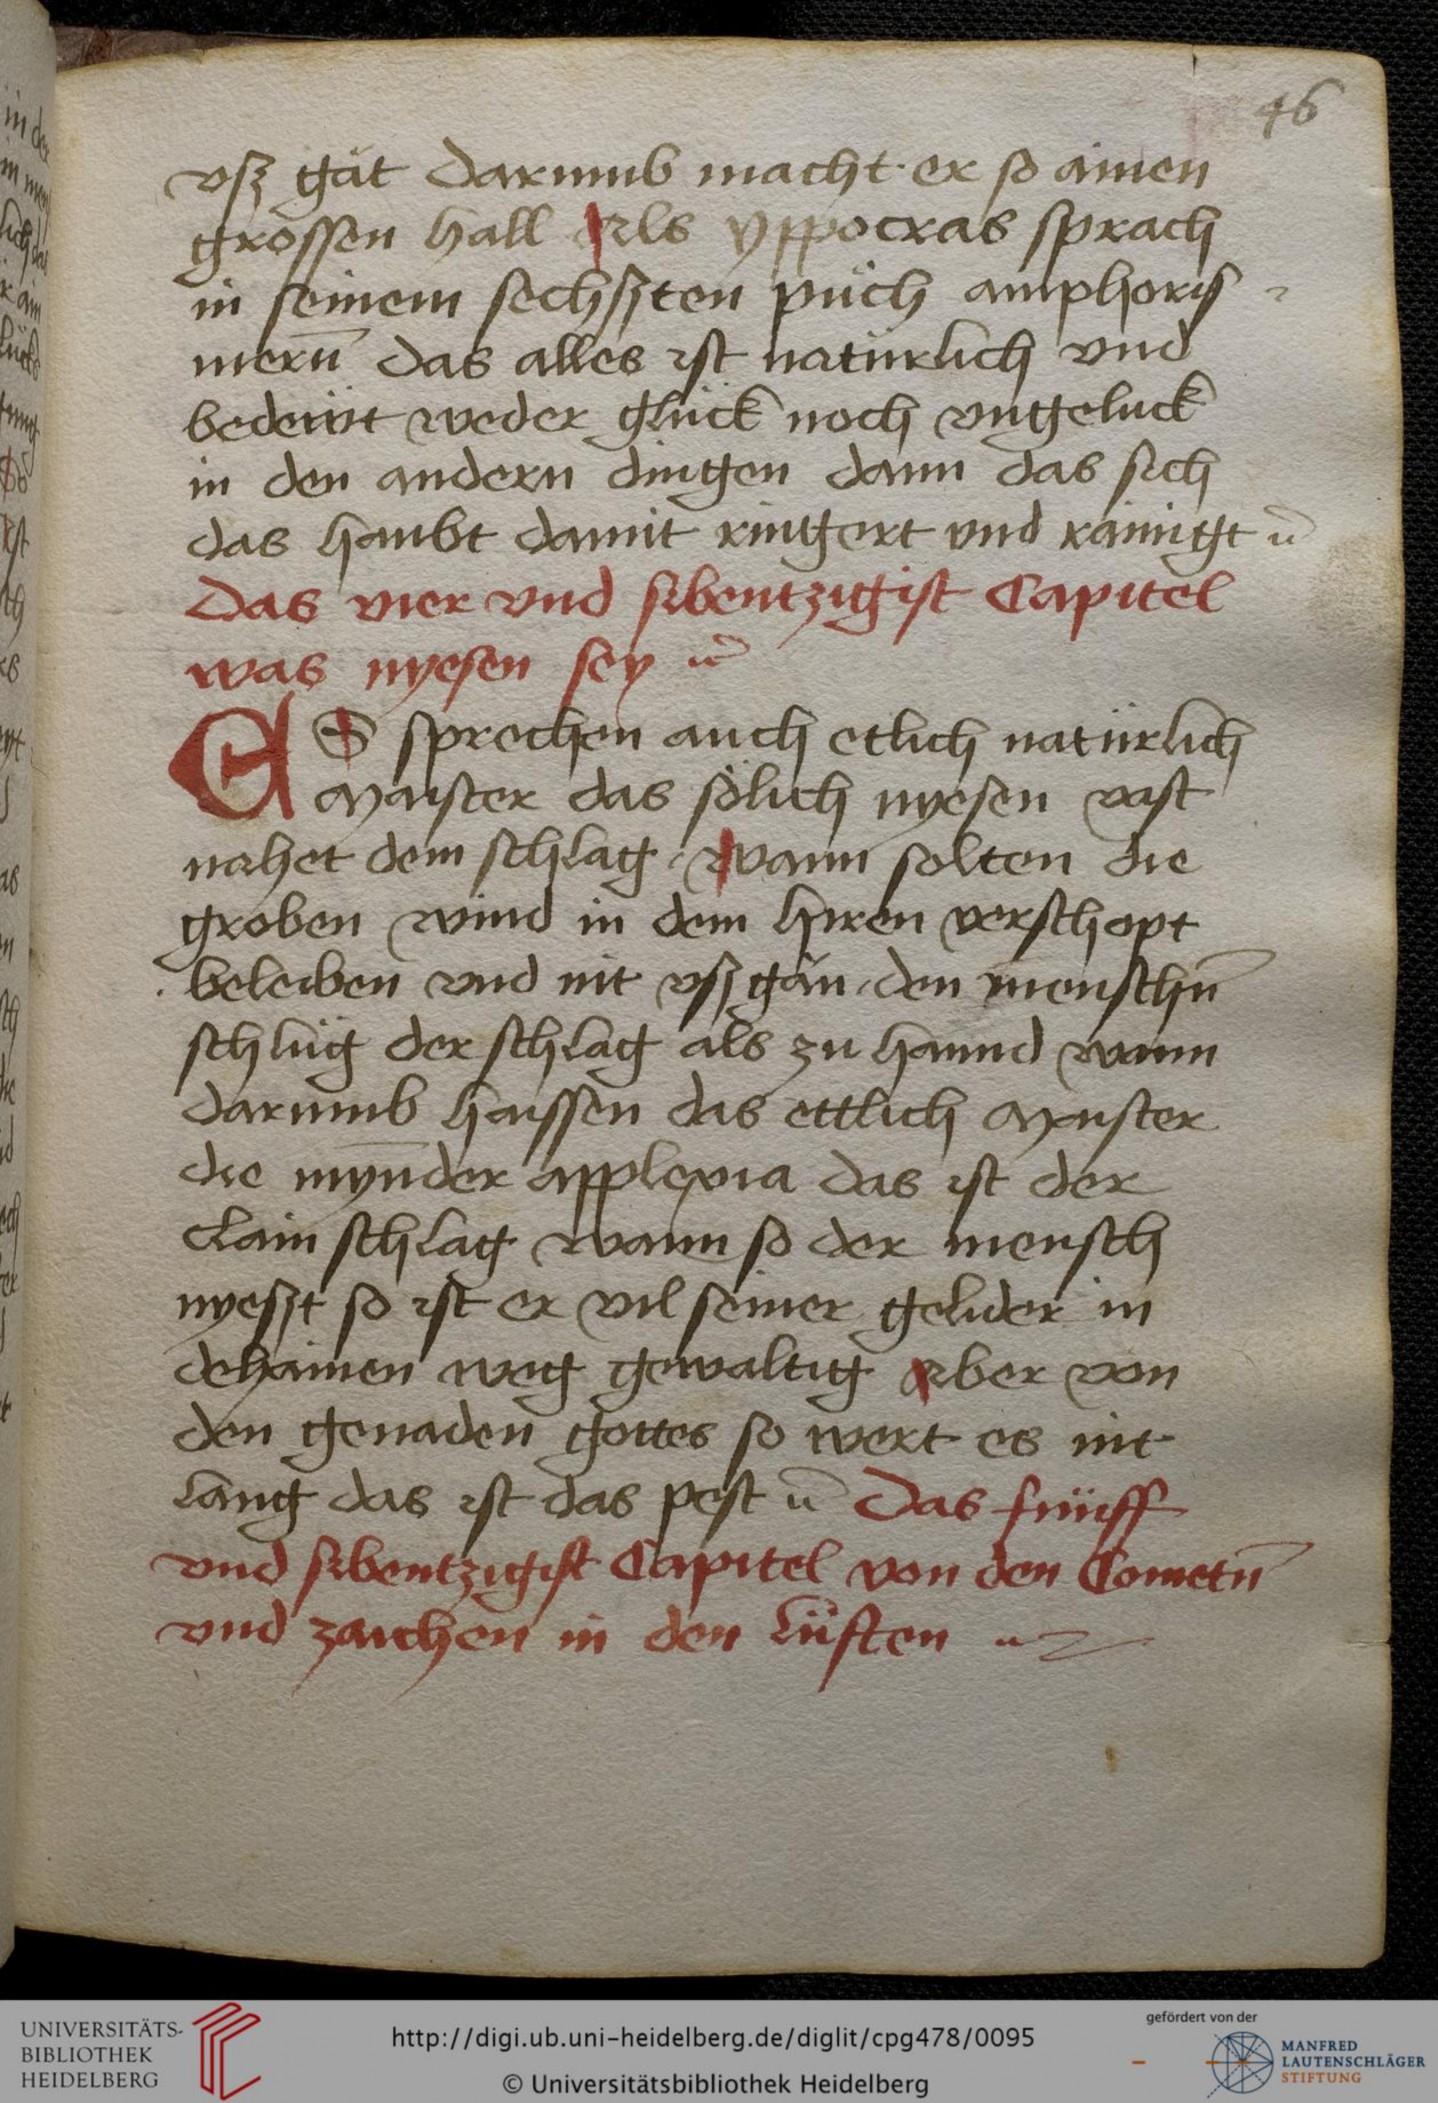 46
vsz gät darumb macht er so ainen
grossen hall Als yppocras sprach
in seinem sechszten püch amphoris
merū das alles ist natürlich vnd
bedeüt weder glück noch vngeluck
in den andern dingen dann das sich
das haubt damit ringert vnd rainigt
Das vier vnd sibentzigist Capitel
was nyesen sey
ES sprechen auch etlich natürlich
Maister das sölich nyesen vast
nahet dem schlag wann solten die
groben wind in dem hiren verschopt
beleiben vnd nit vszgän den menschn̄
schlüg der schlag als zu hannd wann
darumb haissen das ettlich Maister
die mynder applexia das ist der
clain schlag wann so der mensch
nyeszt so ist er vil seiner gelider in
dehainen weg gewaltig Aber von
den genaden gottes so wert es nit
lang das ist das pest Das fünff
vnd sibentzigist Capitel von den Cometn̄
vnd zaichen in den lüften
UNIVERSITÄTS-
BIBLIOTHEK
HEIDELBERG
http://digi.ub.uni-heidelberg.de/diglit/cpg478/0095
© Universitätsbibliothek Heidelberg
gefördert von der
MANFRED
LAUTENSCHLÄGER
STIFTUNG